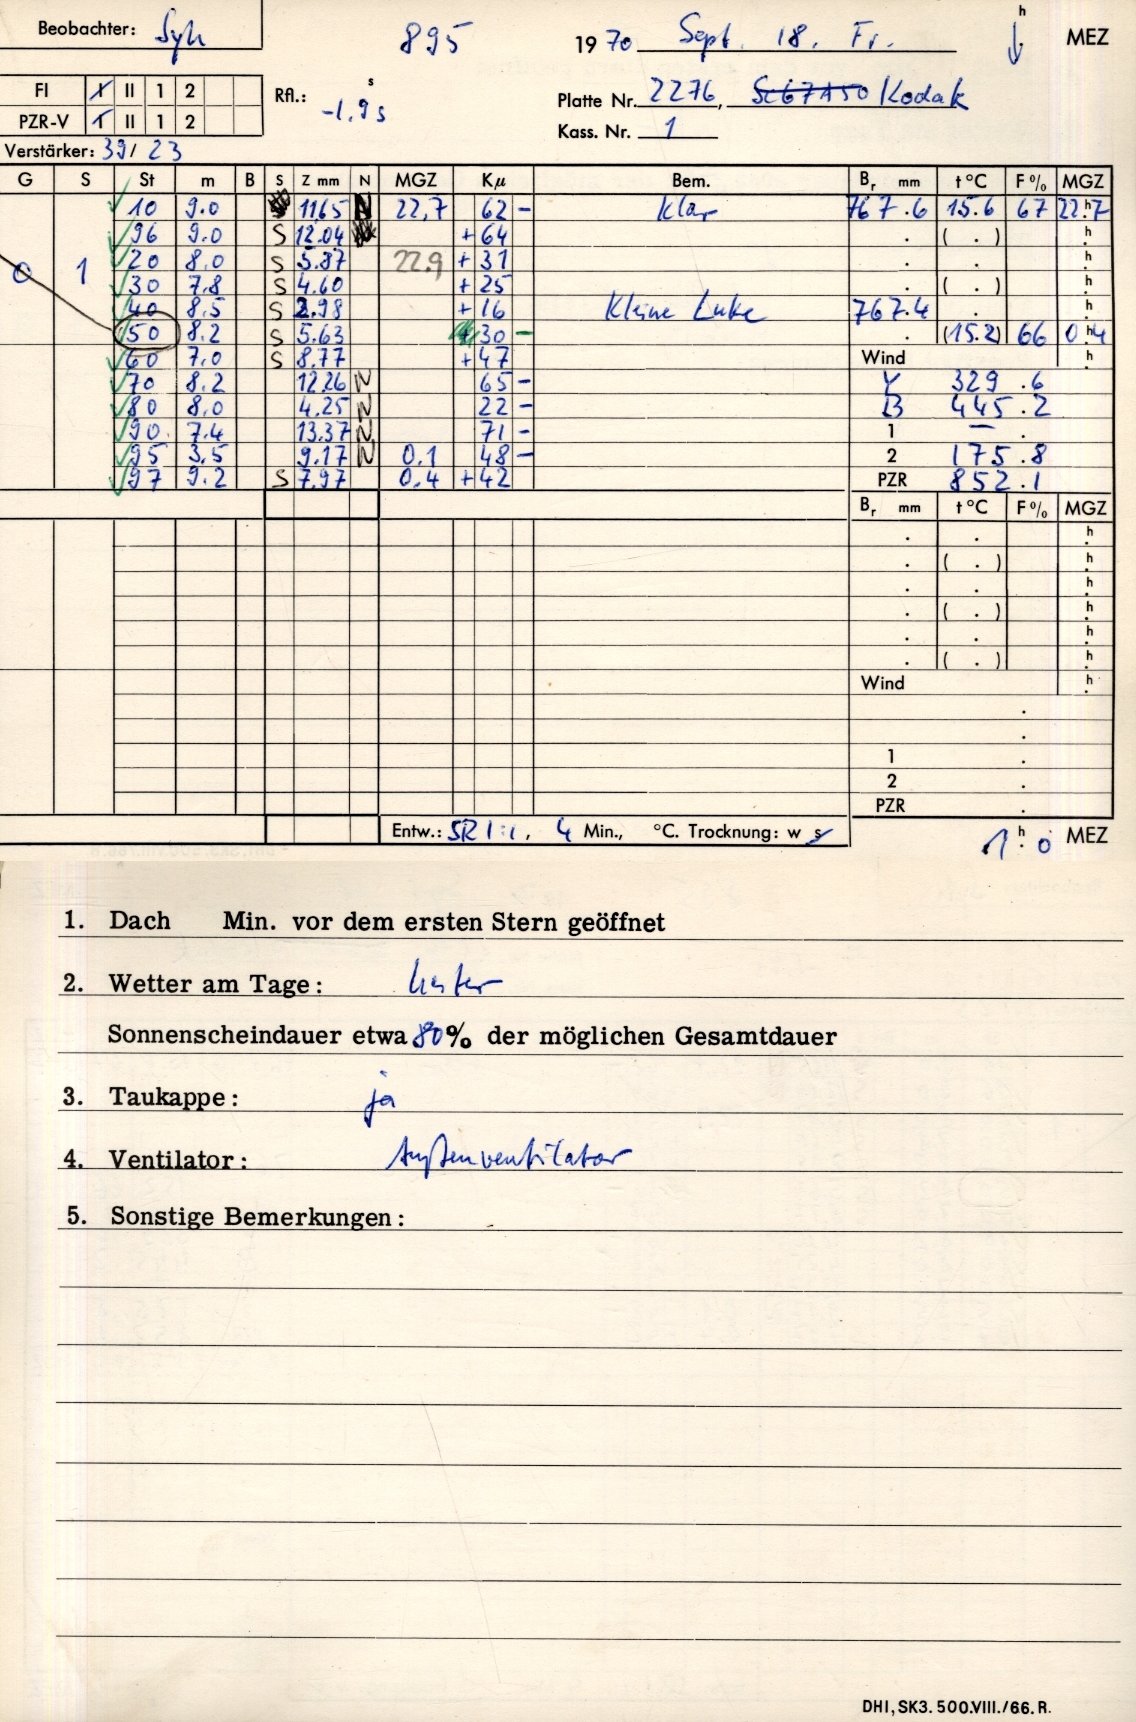 Beobachter: Syh 895 1970 Sept. 18. Fr. h MEZ
FI I II 1 2 Rfl.: -1.9 s s Platte Nr. 2276, Sc67A50 Kodak
PZR-V I II 1 2 Kass. Nr. 1
Verstärker: 39/23
G S St m B S Z mm N MGZ Kμ Bem. Br mm t°C F% MGZ
10 9.0 11.65 N 22,7 62 - Klar 767.6 15.6 67 22.7 h
96 9.0 S 12.04 +64 . ( . ) h
0 1 20 8.0 S 5.87 22.9 +31 . . h
30 7.8 S 4.60 +25 . ( . ) h
40 8.5 S 2.98 +16 Kleine Luke 767.4 . h
50 8.2 S 5.63 +30 - . (15.2) 66 0.4 h
60 7.0 S 8.77 +47 Wind h
70 8.2 12.26 N 65 - Y 329.6
80 8.0 4.25 N 22 - B 445.2
90 7.4 13.37 N 71 - 1 — .
95 3.5 9.17 N 0.1 48 - 2 175.8
97 9.2 S 7.97 0.4 +42 PZR 852.1
Br mm t°C F% MGZ
. . h
. ( . ) h
. . h
. ( . ) h
. . h
. ( . ) h
Wind h
.
.
1 .
2 .
PZR .
Entw.: SR 1:1, 4 Min., °C. Trocknung: w s 1 h. 0 MEZ
1. Dach Min. vor dem ersten Stern geöffnet
2. Wetter am Tage: heiter
Sonnenscheindauer etwa 80% der möglichen Gesamtdauer
3. Taukappe: ja
4. Ventilator: Außenventilator
5. Sonstige Bemerkungen:
DHI, SK3. 500.VIII./66. R.